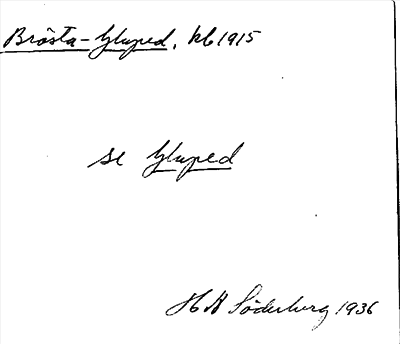 Brösta-Gluped, kb 1915
se Gluped
H A Söderberg 1936